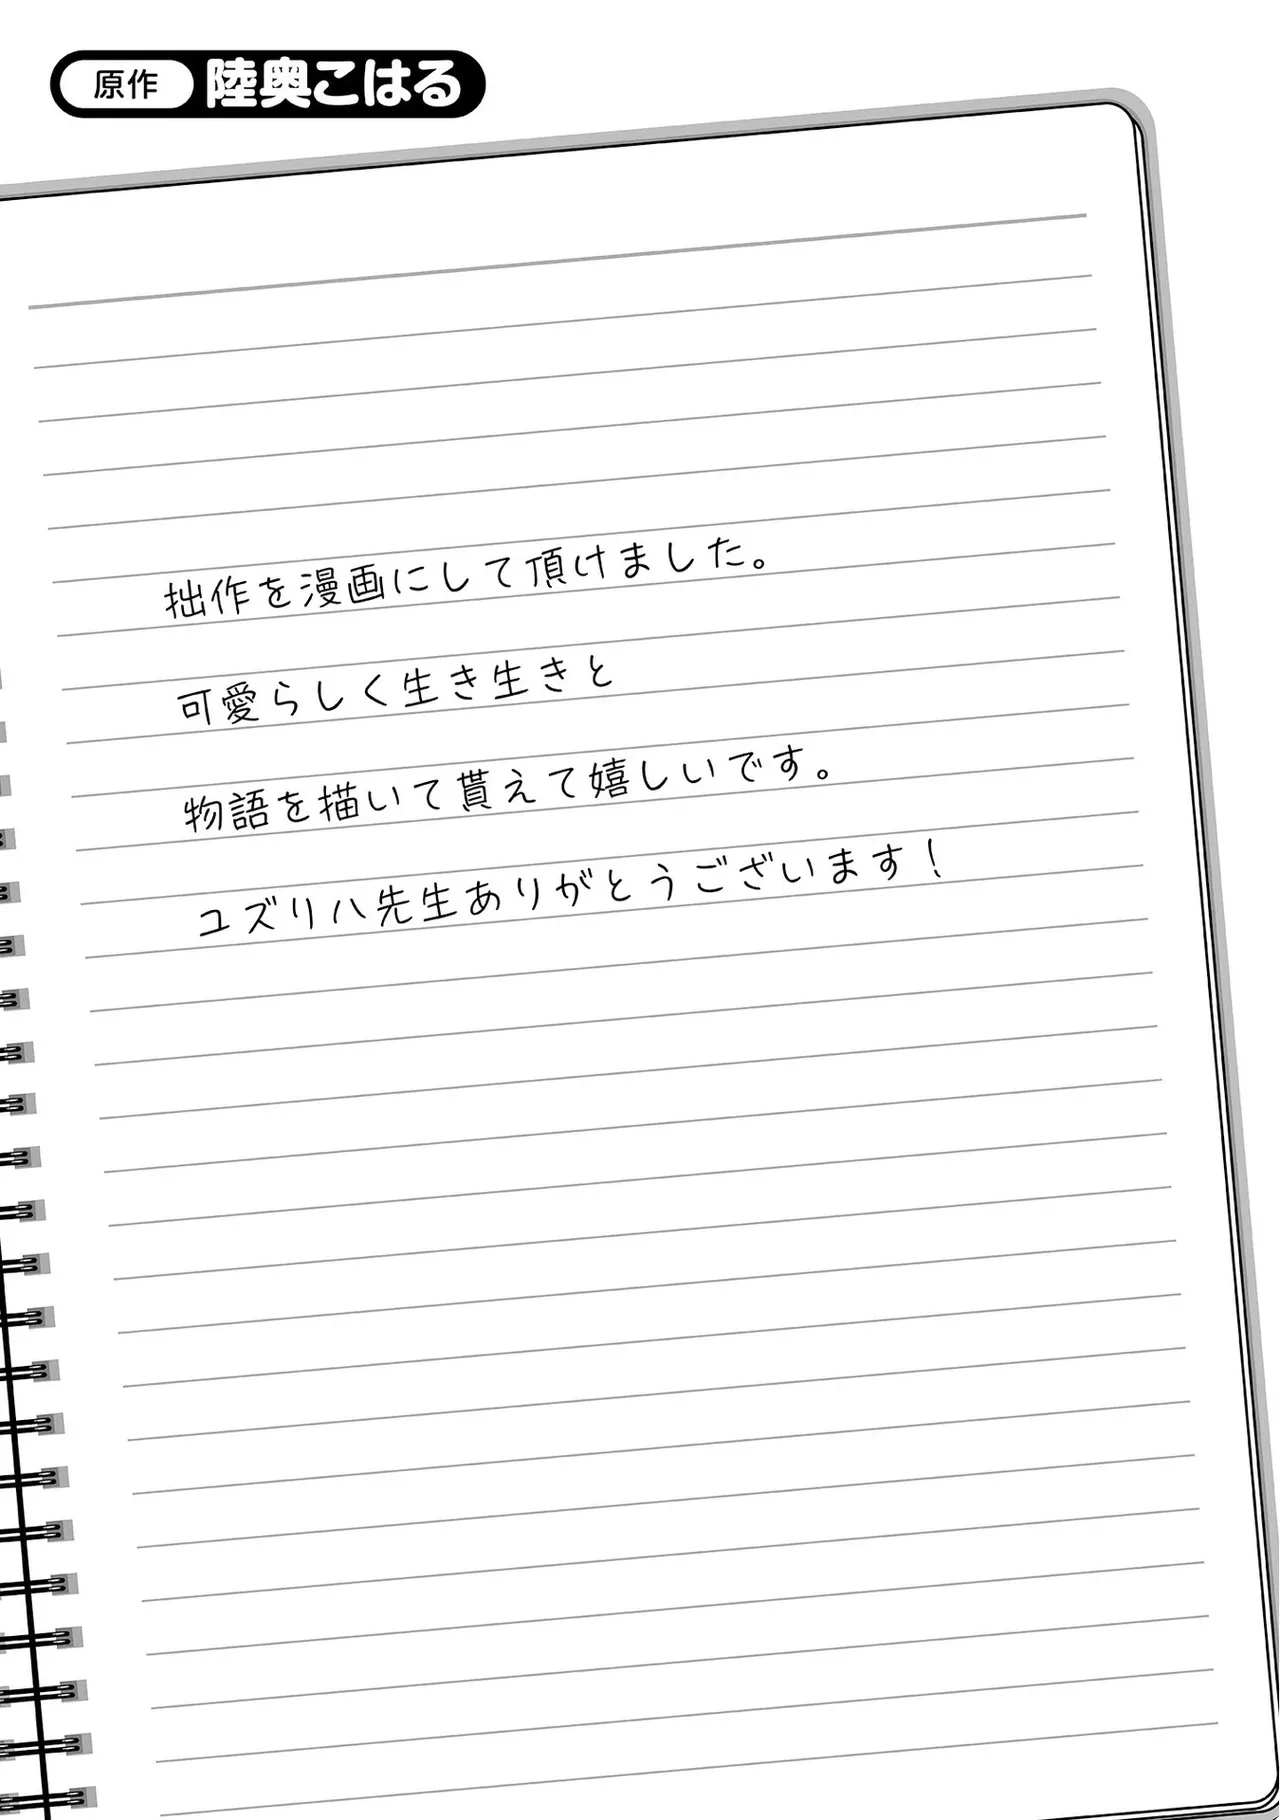 原作 陸奥こはる
拙作を漫画にして頂けました。
可愛らしく生き生きと
物語を描いて貰えて嬉しいです。
ユズリハ先生ありがとうございます！